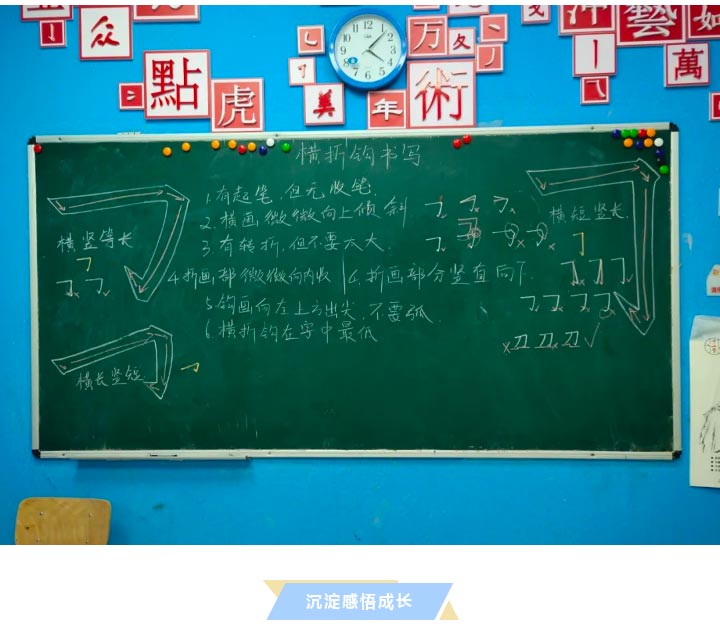 众
點
虎
美
年
万
術
冲
藝
如
萬
12
1
2
3
4
5
6
7
8
9
10
11
横折钩书写
1.有起笔,但无收笔.
2.横画微微向上倾斜
3.有转折,但不要太大.
4.折画部微微向内收 | 6.折画部分竖直向下.
5.钩画向左上方出尖,不要弧.
6.横折钩在字中最低
横竖等长
横长竖短.
横短竖长.
刀刀刀
沉淀感悟成长